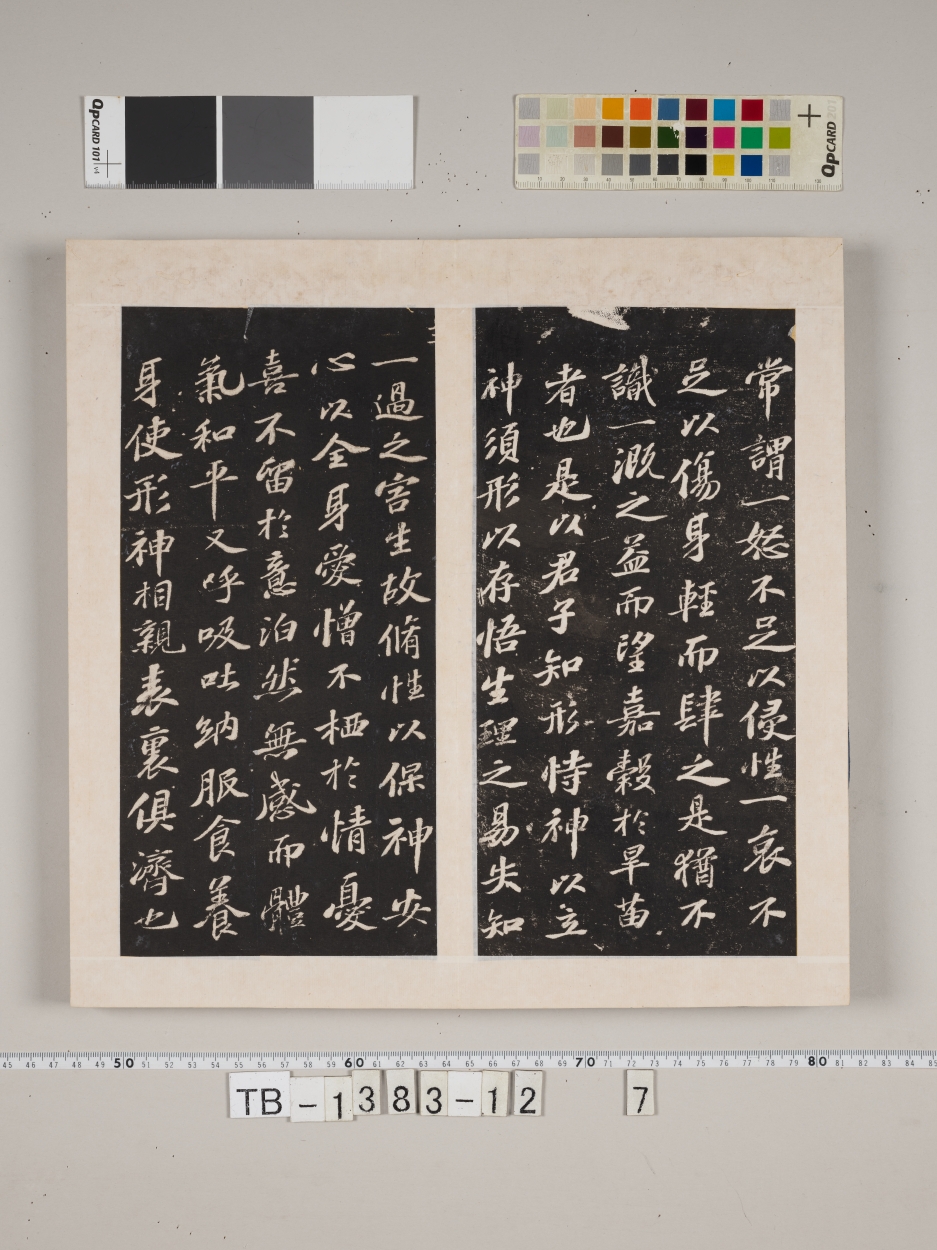 QpCARD 101 v4
QpCARD 201
常謂一怒不足以侵性一哀不
足以傷身輕而肆之是猶不
識一溉之益而望嘉穀於旱苗
者也是以君子知形恃神以立
神須形以存悟生理之易失知
一過之害生故脩性以保神安
心以全身愛憎不栖於情憂
喜不留於意泊然無感而體
氣和平又呼吸吐納服食養
身使形神相親表裏俱濟也
45 46 47 48 49 50 51 52 53 54 55 56 57 58 59 60 61 62 63 64 65 66 67 68 69 70 71 72 73 74 75 76 77 78 79 80 81 82 83 84 85
TB-1383-12 7